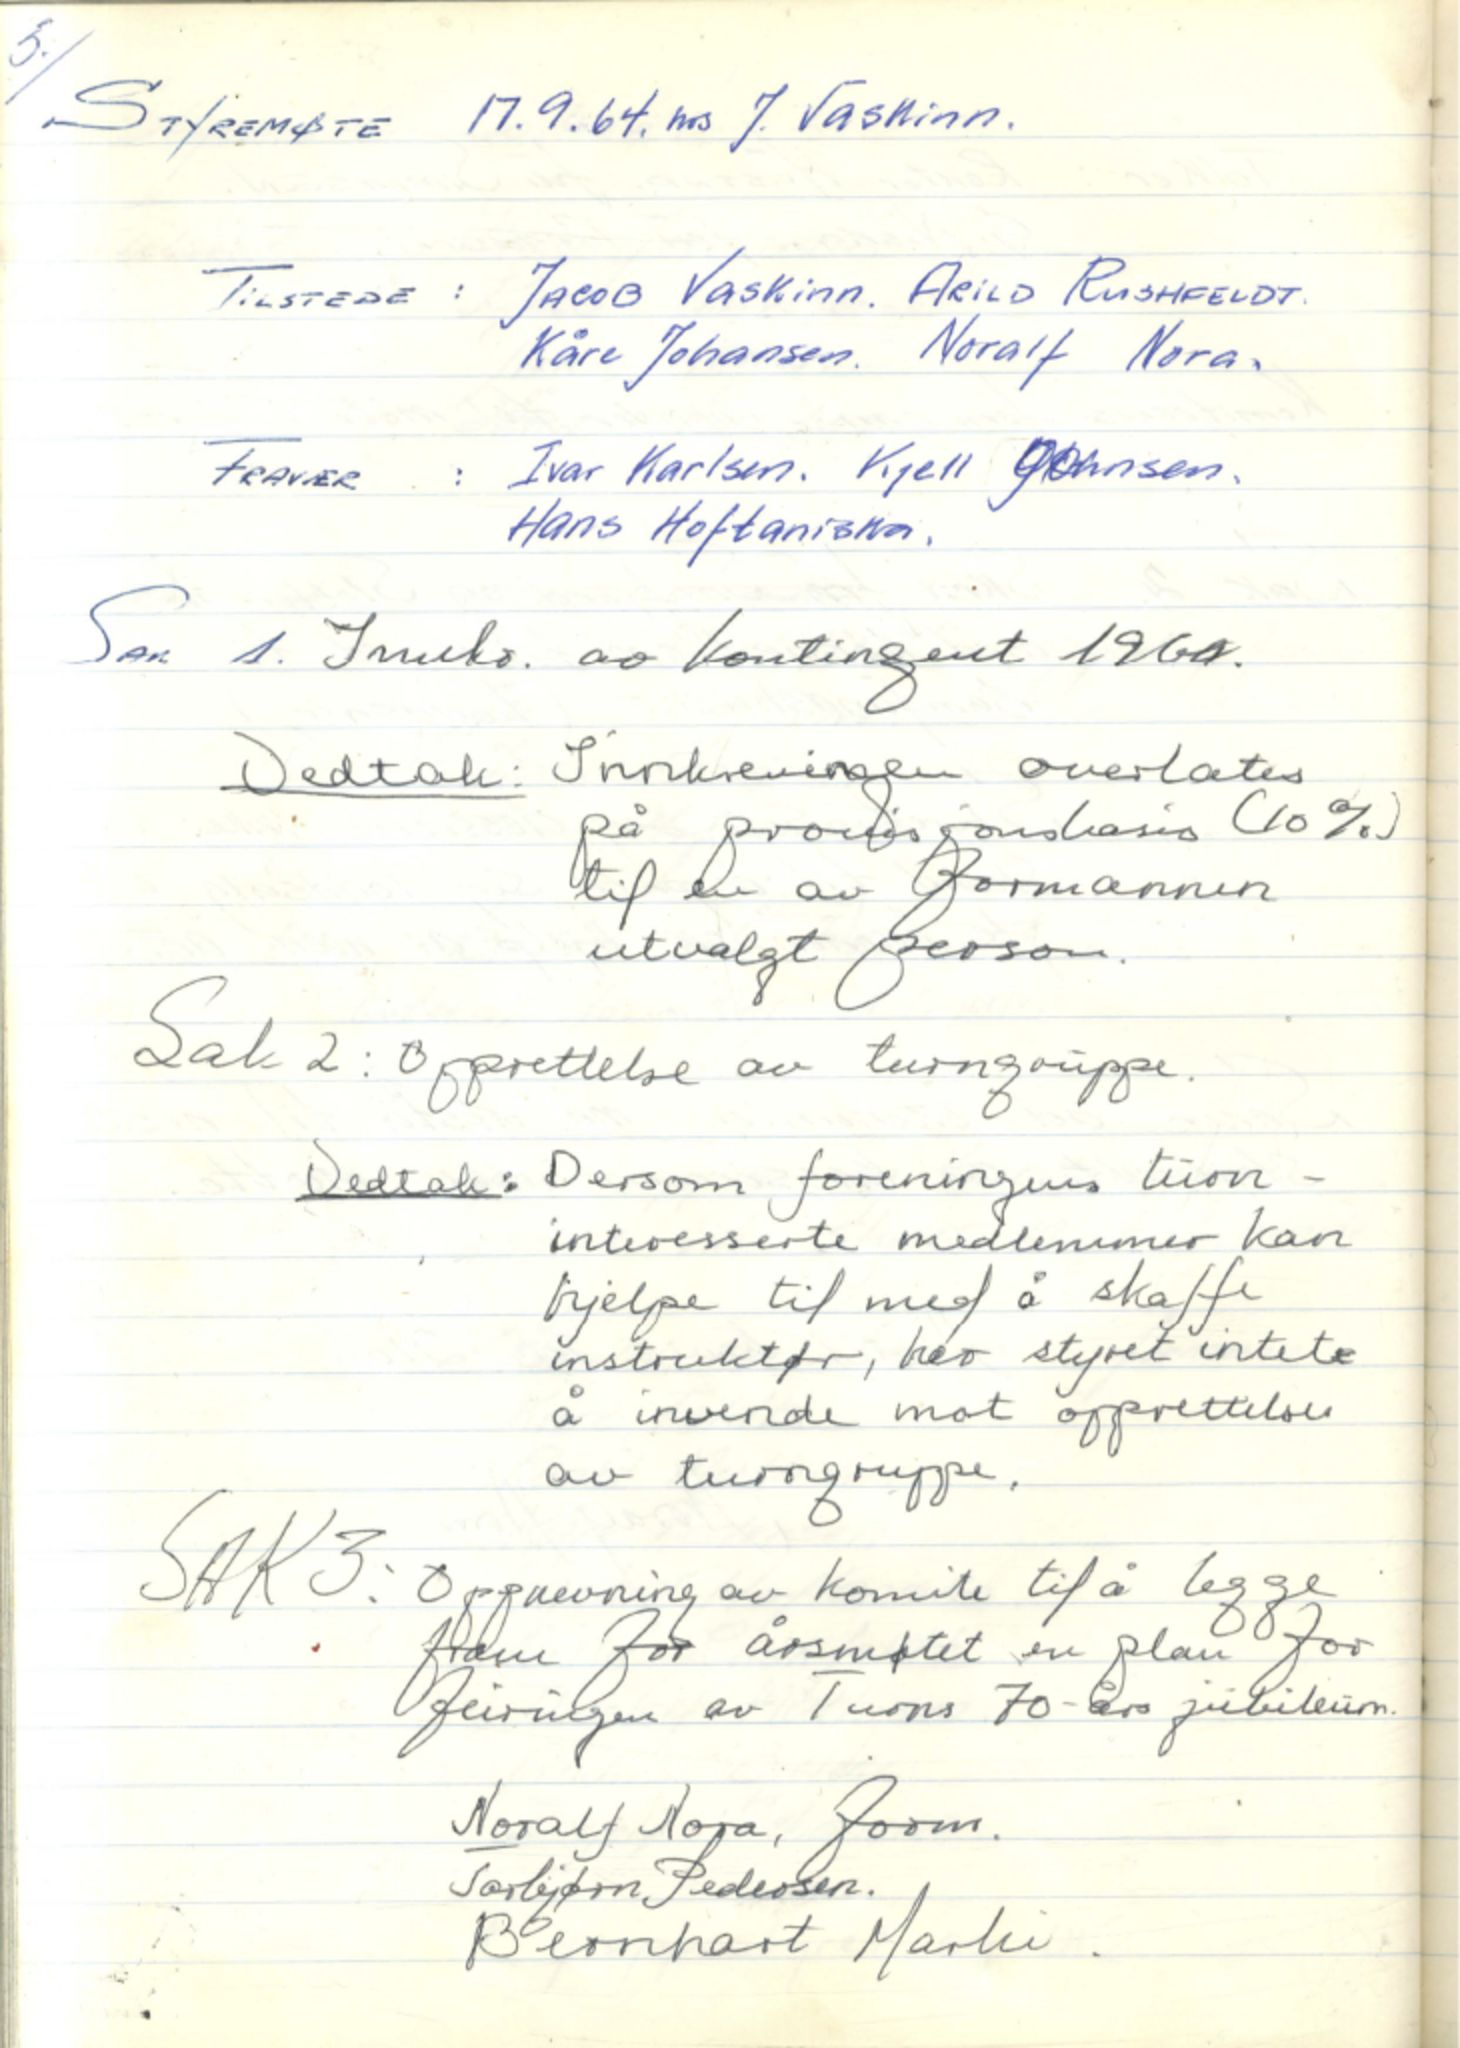 5./
STYREMØTE 17.9.64. hos J. Vaskinn.
TILSTEDE : JACOB Vaskinn. ARILD RUSHFELDT.
Kåre Johansen. Noralf Nora.
FRAVÆR : Ivar Karlsen. Kjell Johnsen.
Hans Hoftaniska.
SAK 1. Innkr. av kontingent 1964.
Vedtak: Innkrevingen overlates
på provisjonsbasis (10%)
til en av formannen
utvalgt person.
Sak 2: Opprettelse av turngruppe.
Vedtak: Dersom foreningens turn-
interesserte medlemmer kan
hjelpe til med å skaffe
instruktør, har styret intete
å invende mot opprettelse
av turngruppe.
SAK 3: Oppnevning av komite til å legge
fram for årsmøtet en plan for
feiringen av Turns 70-års jubileum.
Noralf Nora, form.
Torbjørn Pedersen.
Bernhart